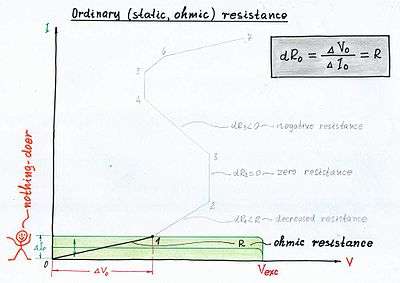 Ordinary (static, ohmic) resistance
I
7
6
dR₀ = ΔV₀ / ΔI₀ = R
5
4
dR₃<0 negative resistance
3
dR₂=0 zero resistance
2
dR₁<R decreased resistance
nothing-doer
ΔI₀
1
R ohmic resistance
0
ΔV₀
Vexc
V